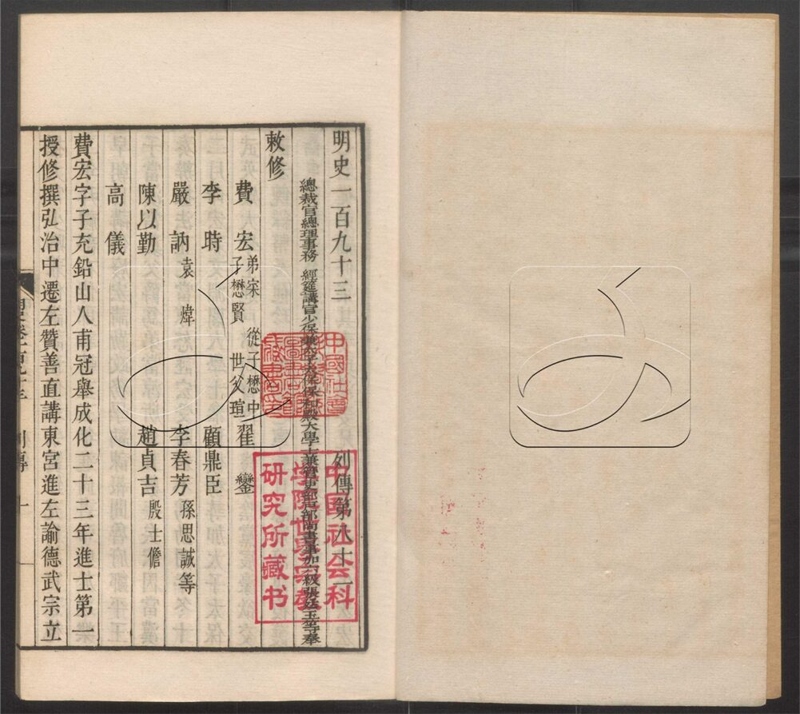 明史一百九十三 列傳第八十一
總裁官總理事務 經筵講官少保兼太子太保保和殿大學士兼管吏部戶部尚書事加六級張廷玉等奉
敕修
費宏 弟寀 從子懋中 子懋賢 世父瑄 翟鑾
李時 顧鼎臣
嚴訥 袁煒 李春芳 孫思誠等
陳以勤 趙貞吉 殷士儋
高儀
費宏字子充鉛山人甫冠舉成化二十三年進士第一
授修撰弘治中遷左贊善直講東宮進左諭德武宗立
中國社會科
學院世界宗教
研究所藏书